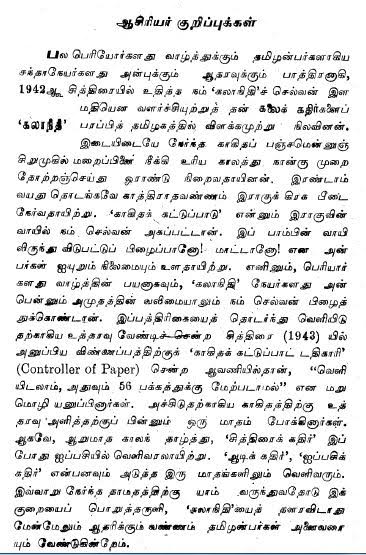 ஆசிரியர் குறிப்புக்கள்
பல பெரியோர்களது வாழ்த்துக்கும் தமிழன்பர்களாகிய
சந்தாநேயர்களது அன்புக்கும் ஆதரவுக்கும் பாத்திரனாகி,
1942ஆ சித்திரையில் உதித்த நம் 'கலாநிதி'ச் செல்வன் இள
மதியென வளர்ச்சியுற்றுத் தன் கலைக் கதிர்களைப்
'கலாநிதி' பரப்பித் தமிழகத்தில் விளக்கமுற்று நிலவினன்.
இடையிடையே நேர்ந்த காகிதப் பஞ்சமென்னுஞ்
சிறுமுகில் மறைப்பினை நீக்கி உரிய காலத்து நான்கு முறை
தோற்றஞ்செய்து ஓராண்டு நிறைவதாயினன். இரண்டாம்
வயது தொடங்கவே காத்திராதவண்ணம் இராகுக் கிரக பீடை
நேர்வதாயிற்று. 'காகிதக் கட்டுப்பாடு' என்னும் இராகுவின்
வாயில் நம் செல்வன் அகப்பட்டான். இப் பாம்பின் வாயி
லிருந்து விடுபட்டுப் பிழைப்பானோ! மாட்டானோ! என அன்
பர்கள் ஐயுறும் நிலைமையும் உளதாயிற்று. எனினும், பெரியார்
களது வாழ்த்தின் பயனாகவும், 'கலாநிதி' நேயர்களது அன்
பென்னும் அமுதத்தின் வலிமையாலும் நம் செல்வன் பிழைத்
துக்கொண்டான். இப்பத்திரிகையைத் தொடர்ந்து வெளியிடு
தற்காகிய உத்தரவு வேண்டிச் சென்ற சித்திரை (1943) யில்
அனுப்பிய விண்ணப்பத்திற்குக் 'காகிதக் கட்டுப்பாட் டதிகாரி'
(Controller of Paper) சென்ற ஆவணியில்தான், "வெளி
யிடலாம், அதுவும் 56 பக்கத்துக்கு மேற்படாமல்" என மறு
மொழி யனுப்பினார்கள். அச்சிடுதற்காகிய காகிதத்திற்கு உத்
தரவு அளித்தற்குப் பின்னும் ஒரு மாதம் போக்கினார்கள்.
ஆகவே, ஆறுமாத காலந் தாழ்த்து, 'சித்திரைக் கதிர்' இப்
போது ஐப்பசியில் வெளிவரலாயிற்று. 'ஆடிக் கதிர்', 'ஐப்பசிக்
கதிர்' என்பனவும் அடுத்த இரு மாதங்களிலும் வெளிவரும்.
இவ்வாறு நேர்ந்த தாமதத்திற்கு யாம் வருந்துவதோடு இக்
குறையைப் பொறுத்தருளி, 'கலாநிதி'யைத் தளரவிடாது
மேன்மேலும் ஆதரிக்கும் வண்ணம் தமிழன்பர்கள் அனைவரை
யும் வேண்டுகின்றேம்.